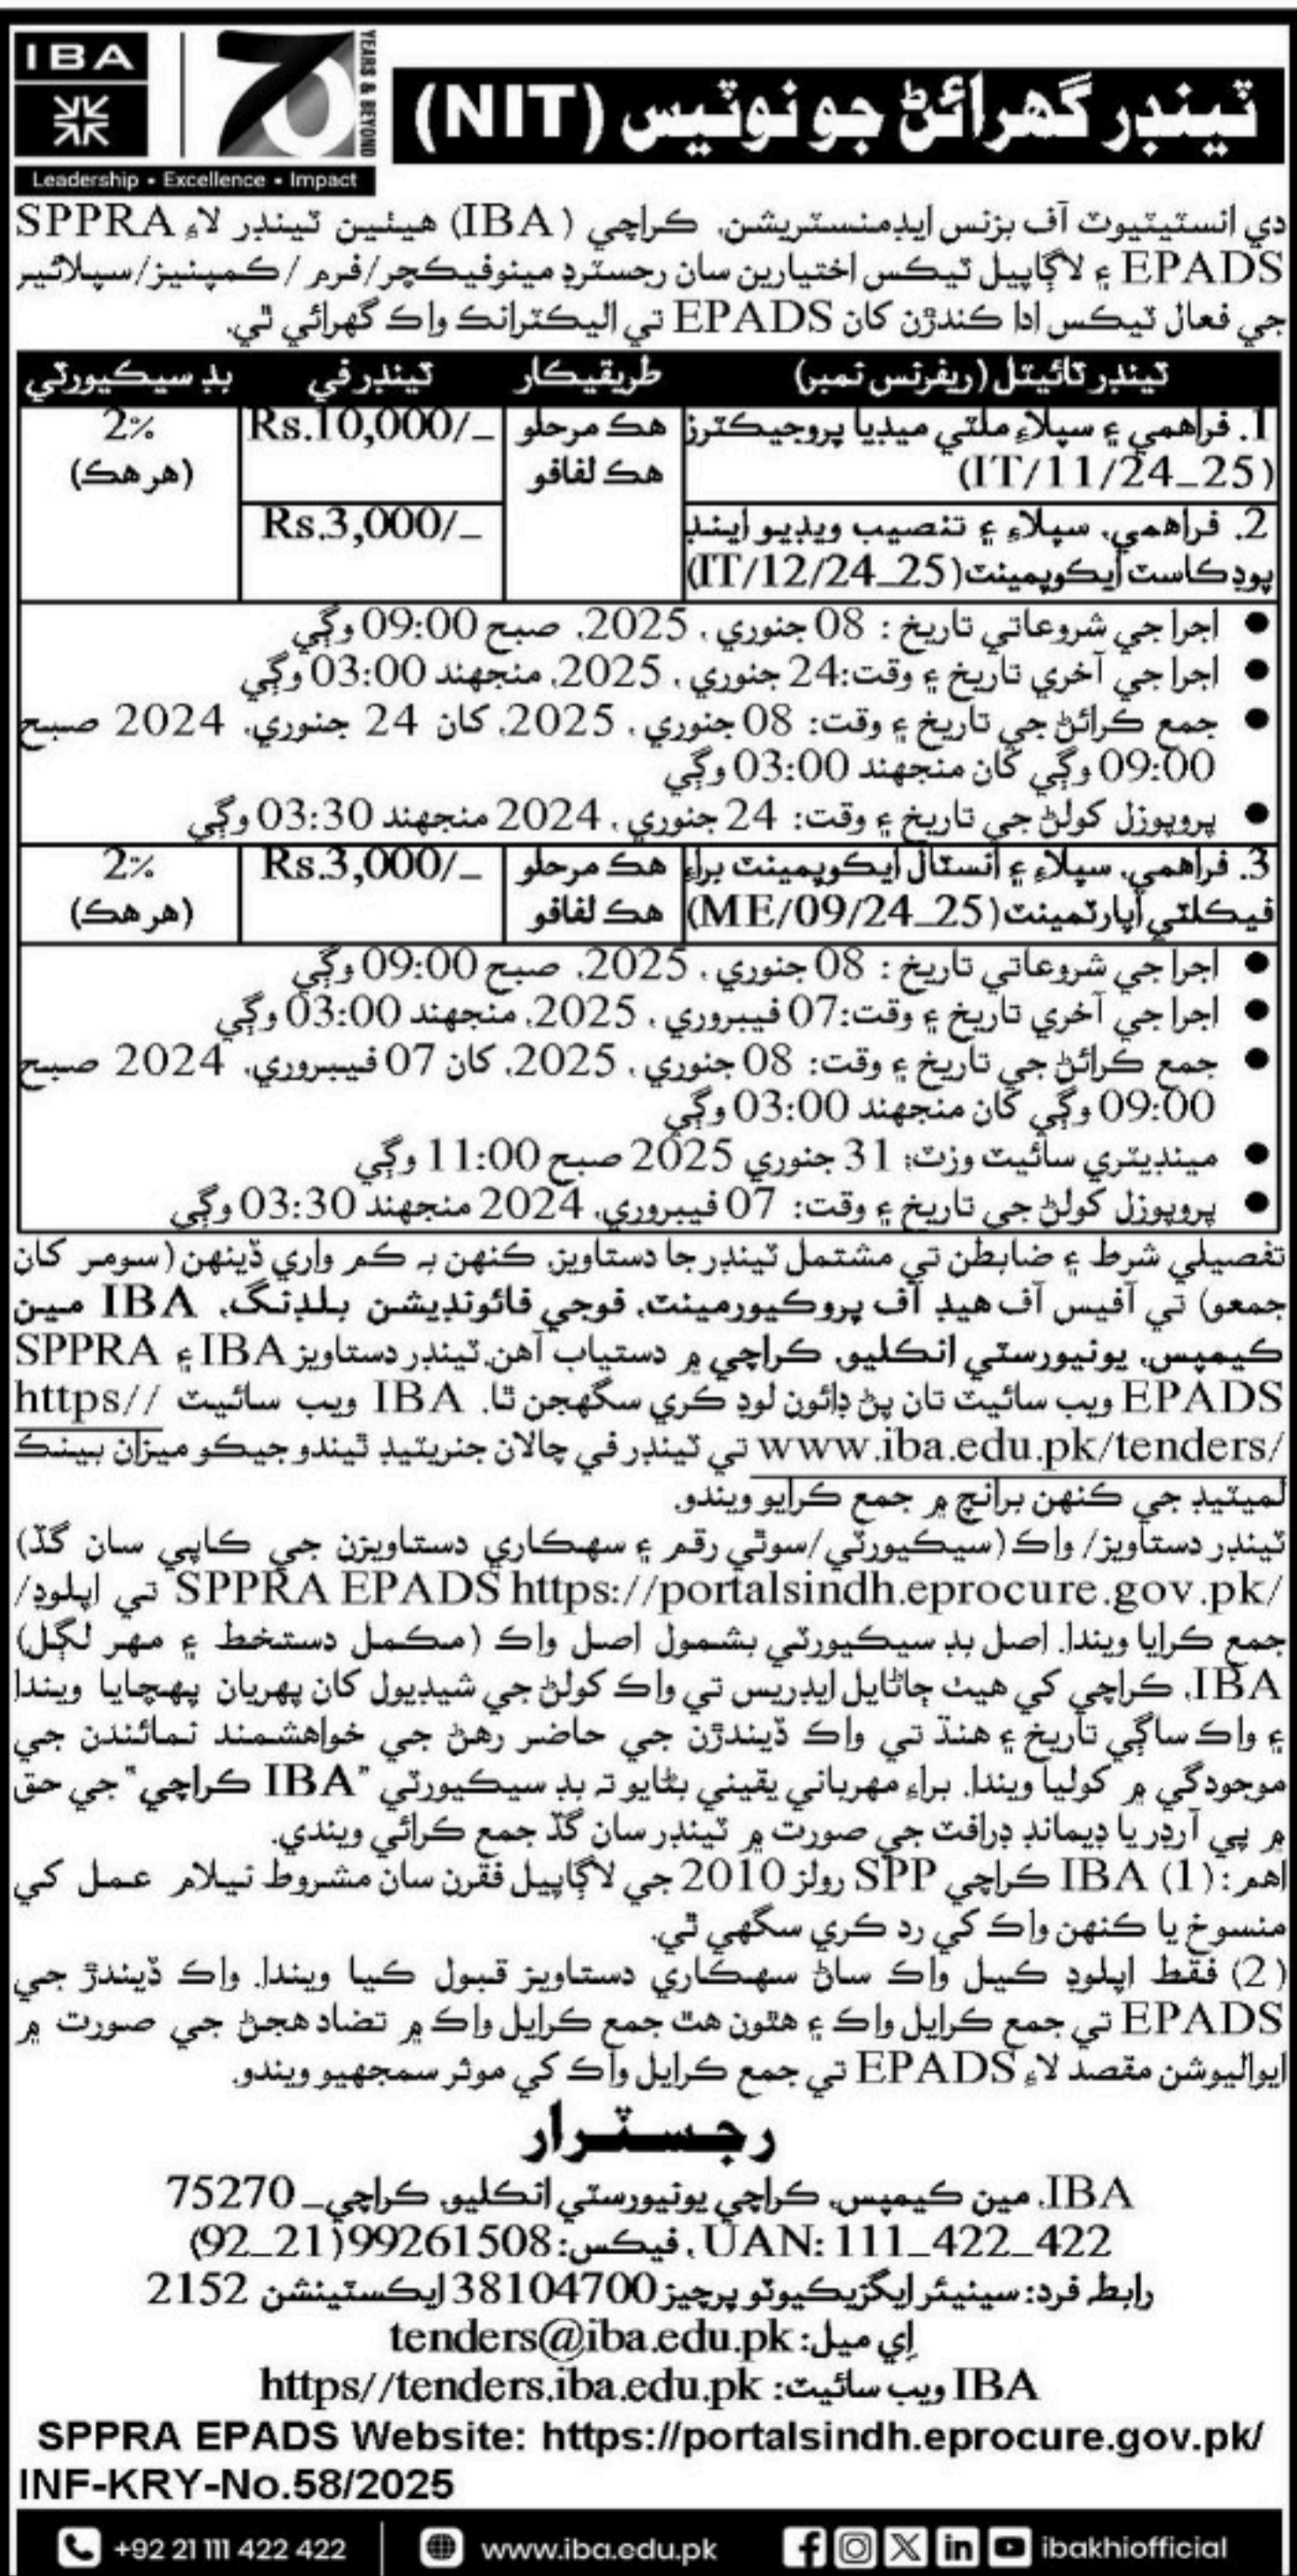 IBA
70
YEARS & BEYOND
Leadership • Excellence • Impact
ٽينڊر گهرائڻ جو نوٽيس (NIT)
دي انسٽيٽيوٽ آف بزنس ايڊمنسٽريشن، ڪراچي (IBA) هيٺين ٽينڊر لاءِ SPPRA
EPADS ۽ لاڳاپيل ٽيڪس اختيارين سان رجسٽرڊ مينوفيڪچر/فرم / ڪمپنيز/سپلائير
جي فعال ٽيڪس ادا ڪندڙن کان EPADS تي اليڪٽرانڪ واڪ گهرائي ٿي.
ٽينڊر ٽائيٽل (ريفرنس نمبر) طريقيڪار ٽينڊر في بڊ سيڪيورٽي
1. فراهمي ۽ سپلاءِ ملٽي ميڊيا پروجيڪٽرز هڪ مرحلو Rs.10,000/_ 2%
(IT/11/24_25) هڪ لفافو (هر هڪ)
2. فراهمي، سپلاءِ ۽ تنصيب ويڊيو اينڊ Rs.3,000/_
پوڊڪاسٽ ايڪوپمينٽ (IT/12/24_25)
● اجرا جي شروعاتي تاريخ : 08 جنوري ، 2025، صبح 09:00 وڳي
● اجرا جي آخري تاريخ ۽ وقت:24 جنوري ، 2025، منجهند 03:00 وڳي
● جمع ڪرائڻ جي تاريخ ۽ وقت: 08 جنوري ، 2025، کان 24 جنوري، 2024 صبح
09:00 وڳي کان منجهند 03:00 وڳي
● پروپوزل کولڻ جي تاريخ ۽ وقت: 24 جنوري ، 2024 منجهند 03:30 وڳي
3. فراهمي، سپلاءِ ۽ انسٽال ايڪوپمينٽ براءِ هڪ مرحلو Rs.3,000/_ 2%
فيڪلٽي اپارٽمينٽ (ME/09/24_25) هڪ لفافو (هر هڪ)
● اجرا جي شروعاتي تاريخ : 08 جنوري ، 2025، صبح 09:00 وڳي
● اجرا جي آخري تاريخ ۽ وقت:07 فيبروري ، 2025، منجهند 03:00 وڳي
● جمع ڪرائڻ جي تاريخ ۽ وقت: 08 جنوري ، 2025، کان 07 فيبروري، 2024 صبح
09:00 وڳي کان منجهند 03:00 وڳي
● مينڊيٽري سائيٽ وزٽ: 31 جنوري 2025 صبح 11:00 وڳي
● پروپوزل کولڻ جي تاريخ ۽ وقت: 07 فيبروري، 2024 منجهند 03:30 وڳي
تفصيلي شرط ۽ ضابطن تي مشتمل ٽينڊر جا دستاويز، ڪنهن به ڪم واري ڏينهن (سومر کان
جمعو) تي آفيس آف هيڊ آف پروڪيورمينٽ، فوجي فائونڊيشن بلڊنگ، IBA مين
ڪيمپس، يونيورسٽي انڪليو، ڪراچي ۾ دستياب آهن. ٽينڊر دستاويز IBA ۽ SPPRA
EPADS ويب سائيٽ تان پڻ ڊائون لوڊ ڪري سگهجن ٿا. IBA ويب سائيٽ https//
www.iba.edu.pk/tenders/ تي ٽينڊر في چالان جنريٽيڊ ٿيندو جيڪو ميزان بينڪ
لميٽيڊ جي ڪنهن برانچ ۾ جمع ڪرايو ويندو.
ٽينڊر دستاويز/ واڪ (سيڪيورٽي/سوٿي رقم ۽ سهڪاري دستاويزن جي ڪاپي سان گڏ)
SPPRA EPADS https://portalsindh.eprocure.gov.pk/ تي اپلوڊ/
جمع ڪرايا ويندا. اصل بڊ سيڪيورٽي بشمول اصل واڪ (مڪمل دستخط ۽ مهر لڳل)
IBA، ڪراچي کي هيٺ ڄاڻايل ايڊريس تي واڪ کولڻ جي شيڊيول کان پهريان پهچايا ويندا
۽ واڪ ساڳي تاريخ ۽ هنڌ تي واڪ ڏيندڙن جي حاضر رهڻ جي خواهشمند نمائندن جي
موجودگي ۾ کوليا ويندا. براءِ مهرباني يقيني بڻايو ته بڊ سيڪيورٽي "IBA ڪراچي" جي حق
۾ پي آرڊر يا ڊيمانڊ ڊرافٽ جي صورت ۾ ٽينڊر سان گڏ جمع ڪرائي ويندي.
اهم: (1) IBA ڪراچي SPP رولز 2010 جي لاڳاپيل فقرن سان مشروط نيلام عمل کي
منسوخ يا ڪنهن واڪ کي رد ڪري سگهي ٿي.
(2) فقط اپلوڊ ڪيل واڪ سان سهڪاري دستاويز قبول ڪيا ويندا. واڪ ڏيندڙ جي
EPADS تي جمع ڪرايل واڪ ۽ هٿون هٿ جمع ڪرايل واڪ ۾ تضاد هجڻ جي صورت ۾
ايواليوشن مقصد لاءِ EPADS تي جمع ڪرايل واڪ کي موثر سمجهيو ويندو.
رجسٽرار
IBA، مين ڪيمپس، ڪراچي يونيورسٽي انڪليو، ڪراچي_ 75270
UAN: 111_422_422 ، فيڪس: 99261508(92_21)
رابط فرد: سينيئر ايگزيڪيوٽو پرچيز 38104700 ايڪسٽينشن 2152
اِي ميل: tenders@iba.edu.pk
IBA ويب سائيٽ: https//tenders.iba.edu.pk
SPPRA EPADS Website: https://portalsindh.eprocure.gov.pk/
INF-KRY-No.58/2025
+92 21 111 422 422 www.iba.edu.pk ibakhiofficial